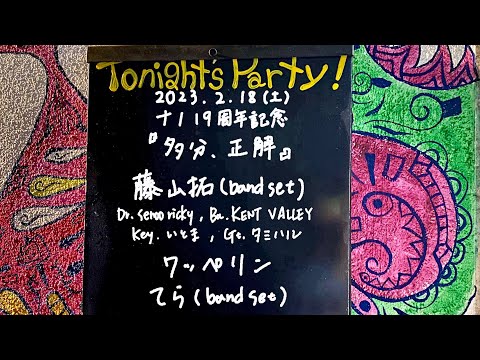 Tonight's Party!
2023.2.18(土)
ナノ19周年記念
『多分、正解』
藤山拓(band set)
Dr. senoo ricky, Ba. KENT VALLEY
Key. いとま, Gt. タミハル
ワッペリン
てら(band set)